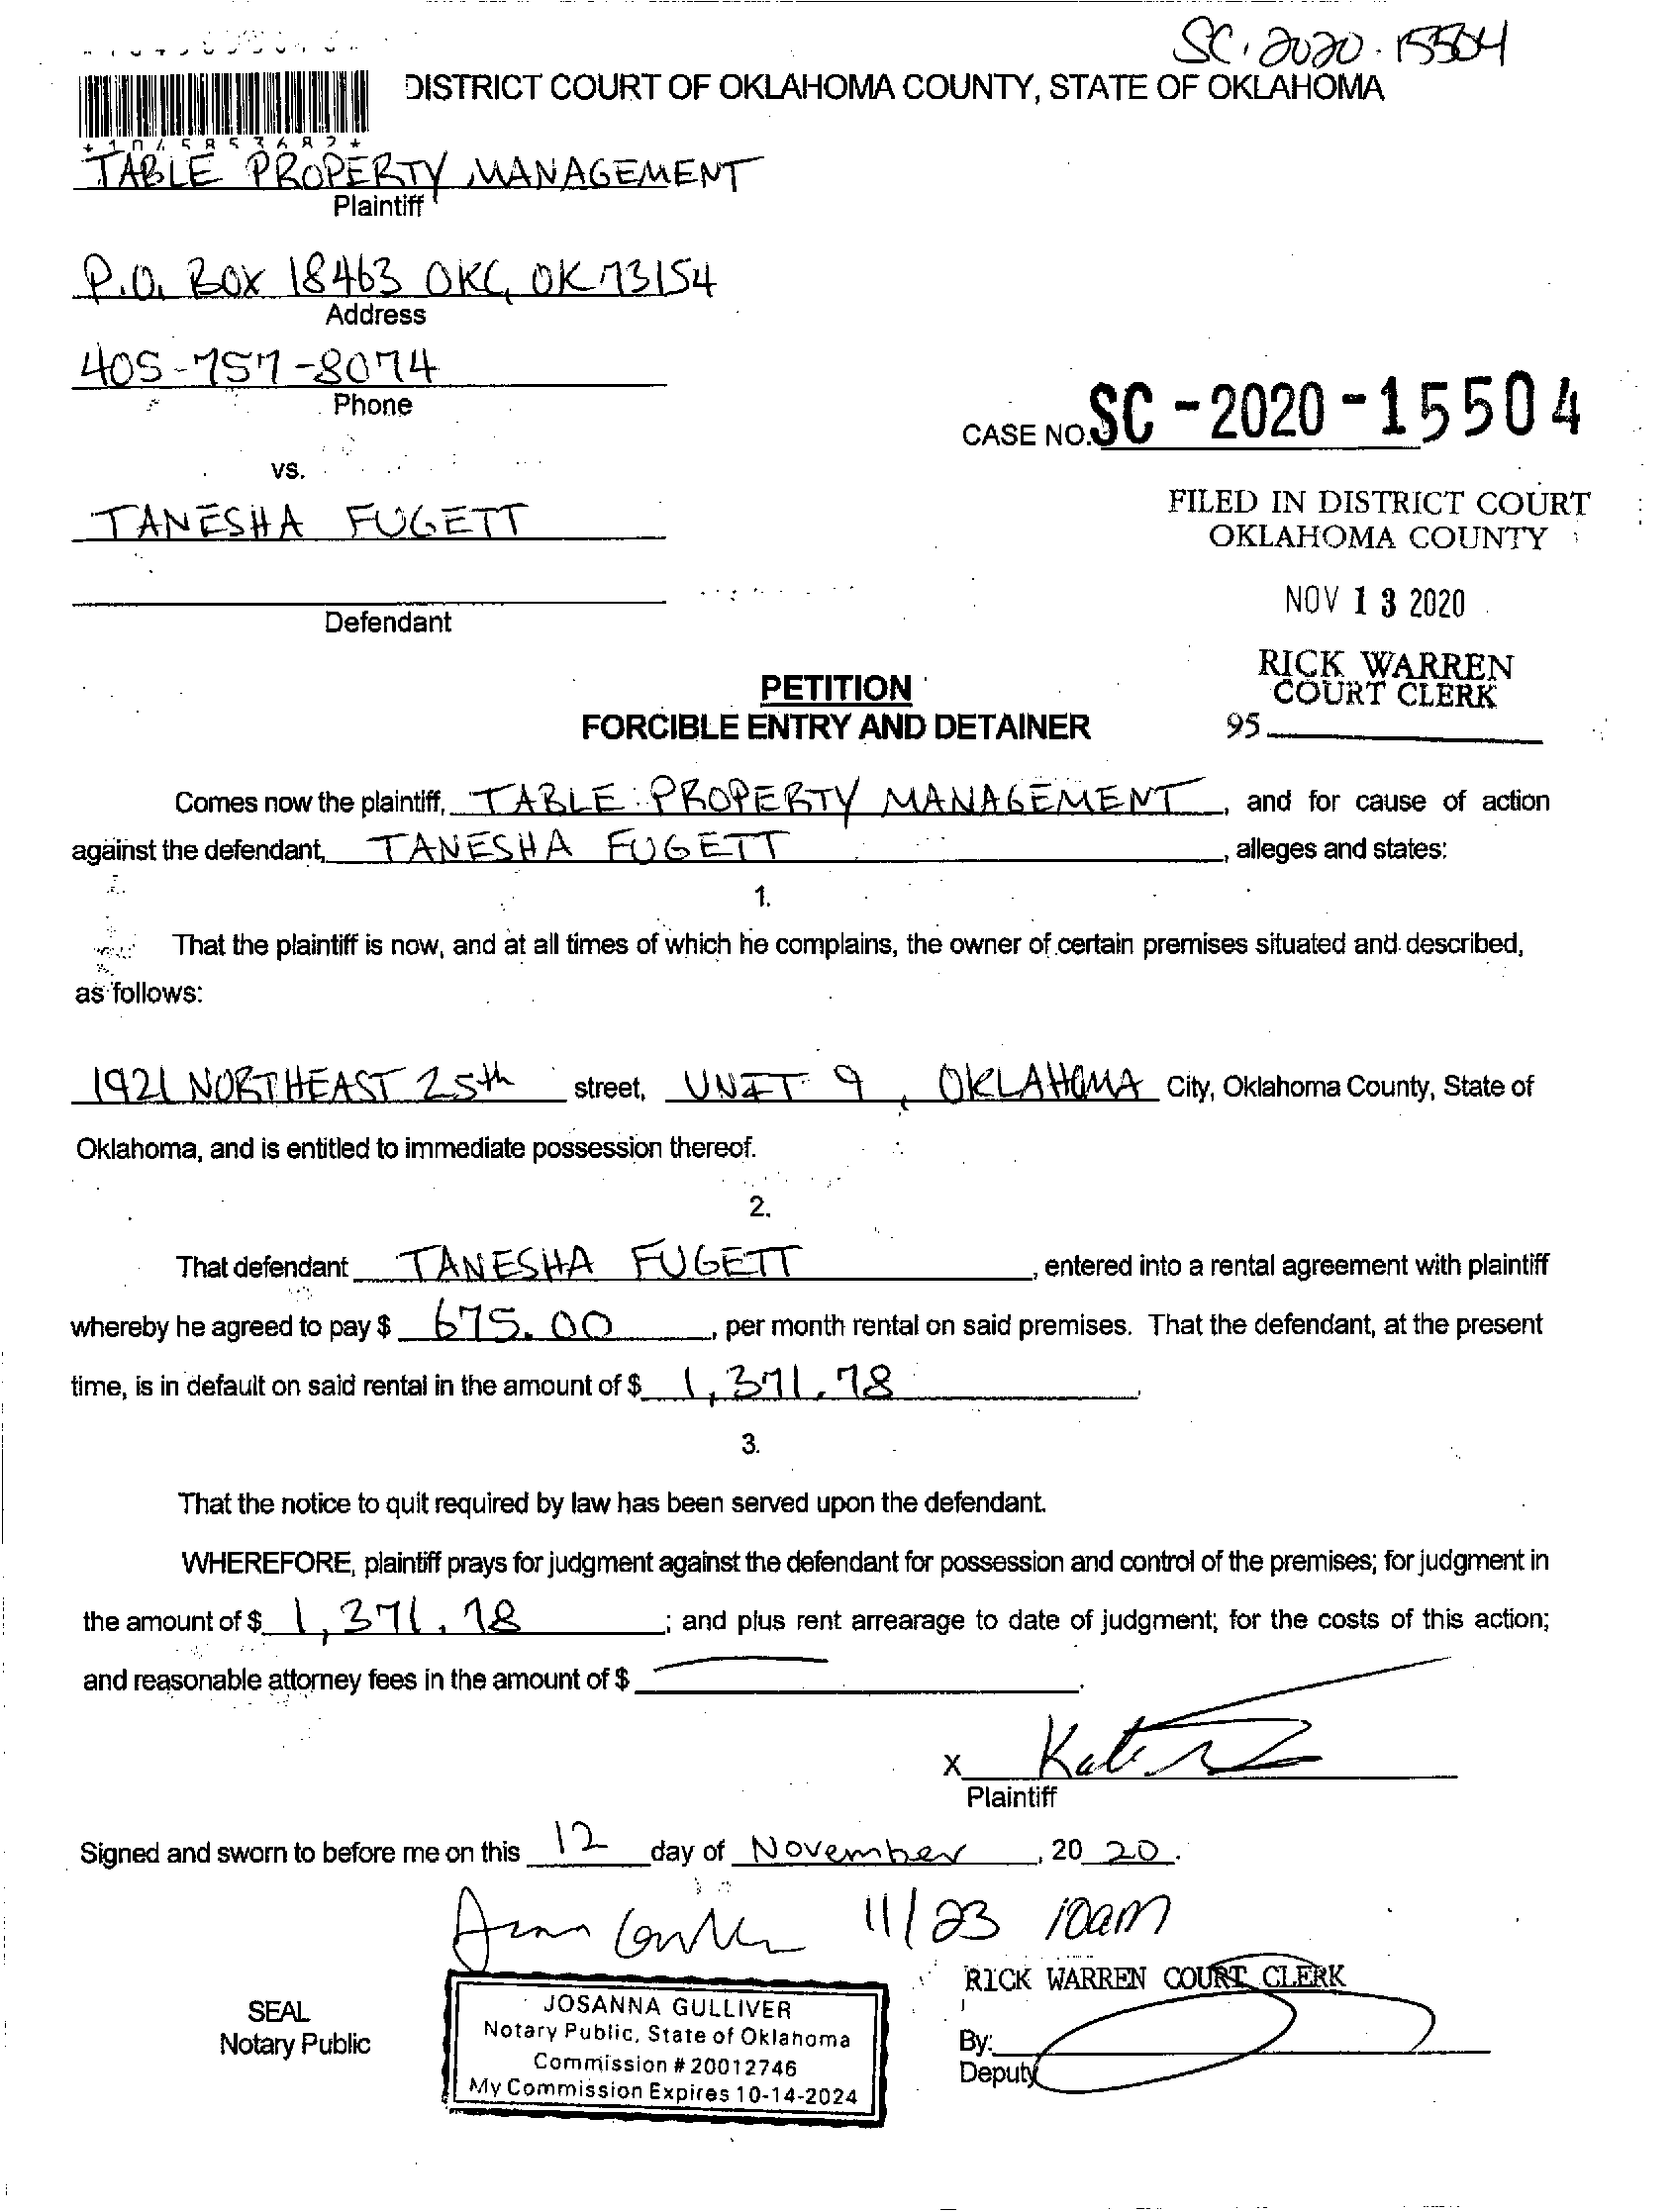 SC-2020-15504
DISTRICT COURT OF OKLAHOMA COUNTY, STATE OF OKLAHOMA
TABLE PROPERTY MANAGEMENT
Plaintiff
P.O. BOX 18463 OKC, OK 73154
Address
405-757-8074
Phone
CASE NO. SC-2020-15504
vs.
TANESHA FUGETT
FILED IN DISTRICT COURT
OKLAHOMA COUNTY
NOV 13 2020
Defendant
RICK WARREN
COURT CLERK
95
PETITION
FORCIBLE ENTRY AND DETAINER
Comes now the plaintiff, TABLE PROPERTY MANAGEMENT, and for cause of action
against the defendant, TANESHA FUGETT, alleges and states:
1.
That the plaintiff is now, and at all times of which he complains, the owner of certain premises situated and described,
as follows:
1921 NORTHEAST 25th street, UNIT 9, OKLAHOMA City, Oklahoma County, State of
Oklahoma, and is entitled to immediate possession thereof.
2.
That defendant TANESHA FUGETT, entered into a rental agreement with plaintiff
whereby he agreed to pay $ 675.00, per month rental on said premises. That the defendant, at the present
time, is in default on said rental in the amount of $ 1,371.78
3.
That the notice to quit required by law has been served upon the defendant.
WHEREFORE, plaintiff prays for judgment against the defendant for possession and control of the premises; for judgment in
the amount of $ 1,371.78; and plus rent arrearage to date of judgment; for the costs of this action;
and reasonable attorney fees in the amount of $
X
Plaintiff
Signed and sworn to before me on this 12 day of November, 20 20.
11/23 10am
RICK WARREN COURT CLERK
SEAL
Notary Public
JOSANNA GULLIVER
Notary Public, State of Oklahoma
Commission # 20012746
My Commission Expires 10-14-2024
By:
Deputy